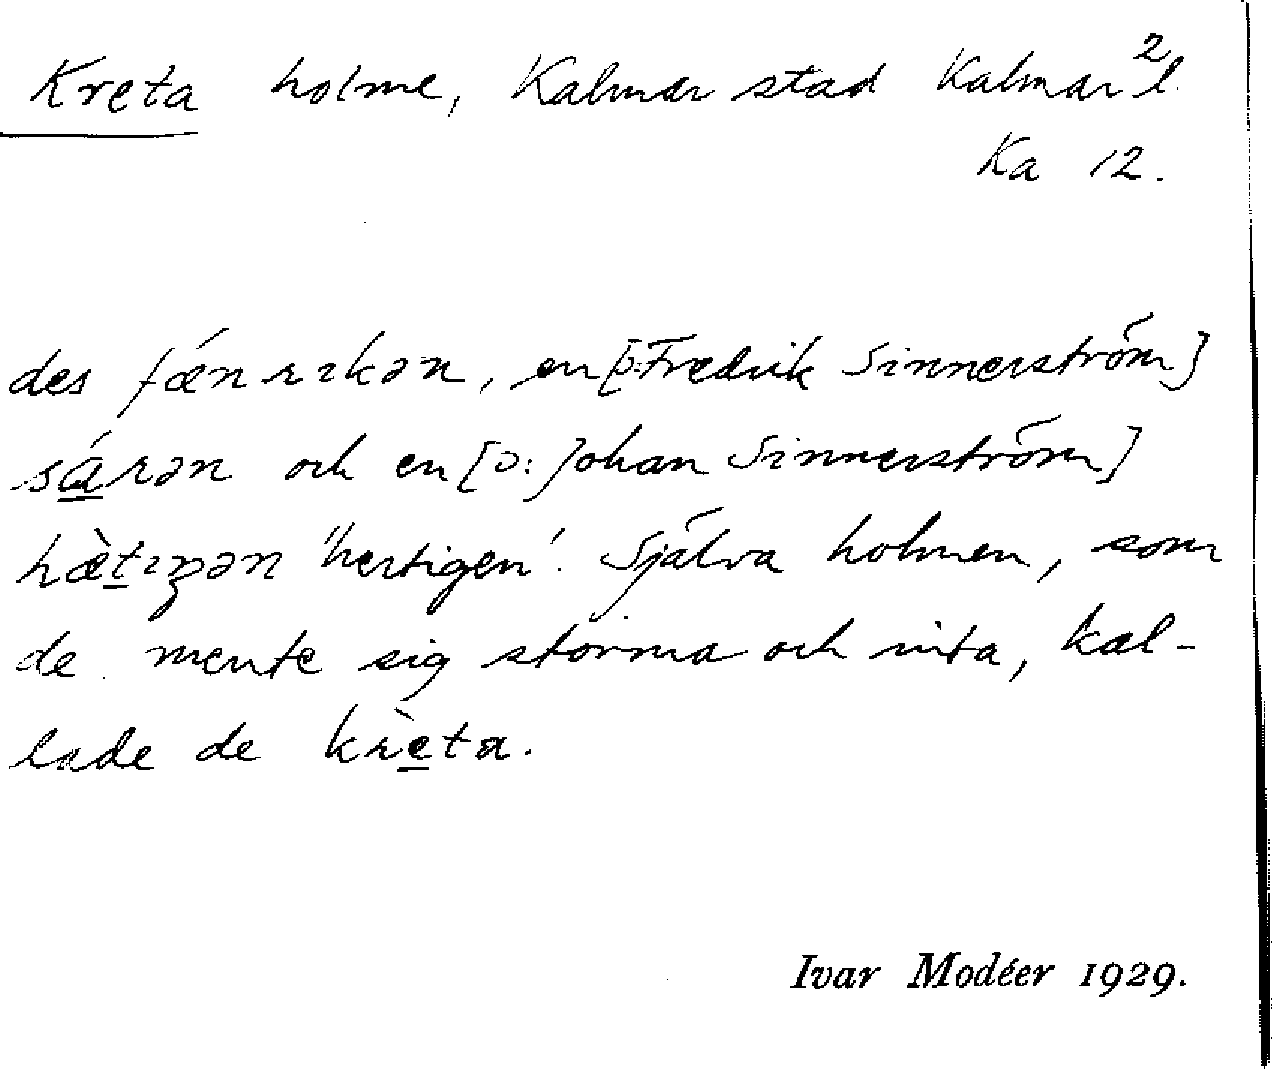 Kreta holme, Kalmar stad Kalmar l. 2
Ka 12.
des fǽnrıkən, en [ɔ: Fredrik Sinnerström]
sárən och en [ɔ: Johan Sinnerström]
hæ̀tıgən 'hertigen'. Själva holmen, som
de mente sig storma och inta, kal-
lade de krèta.
Ivar Modéer 1929.